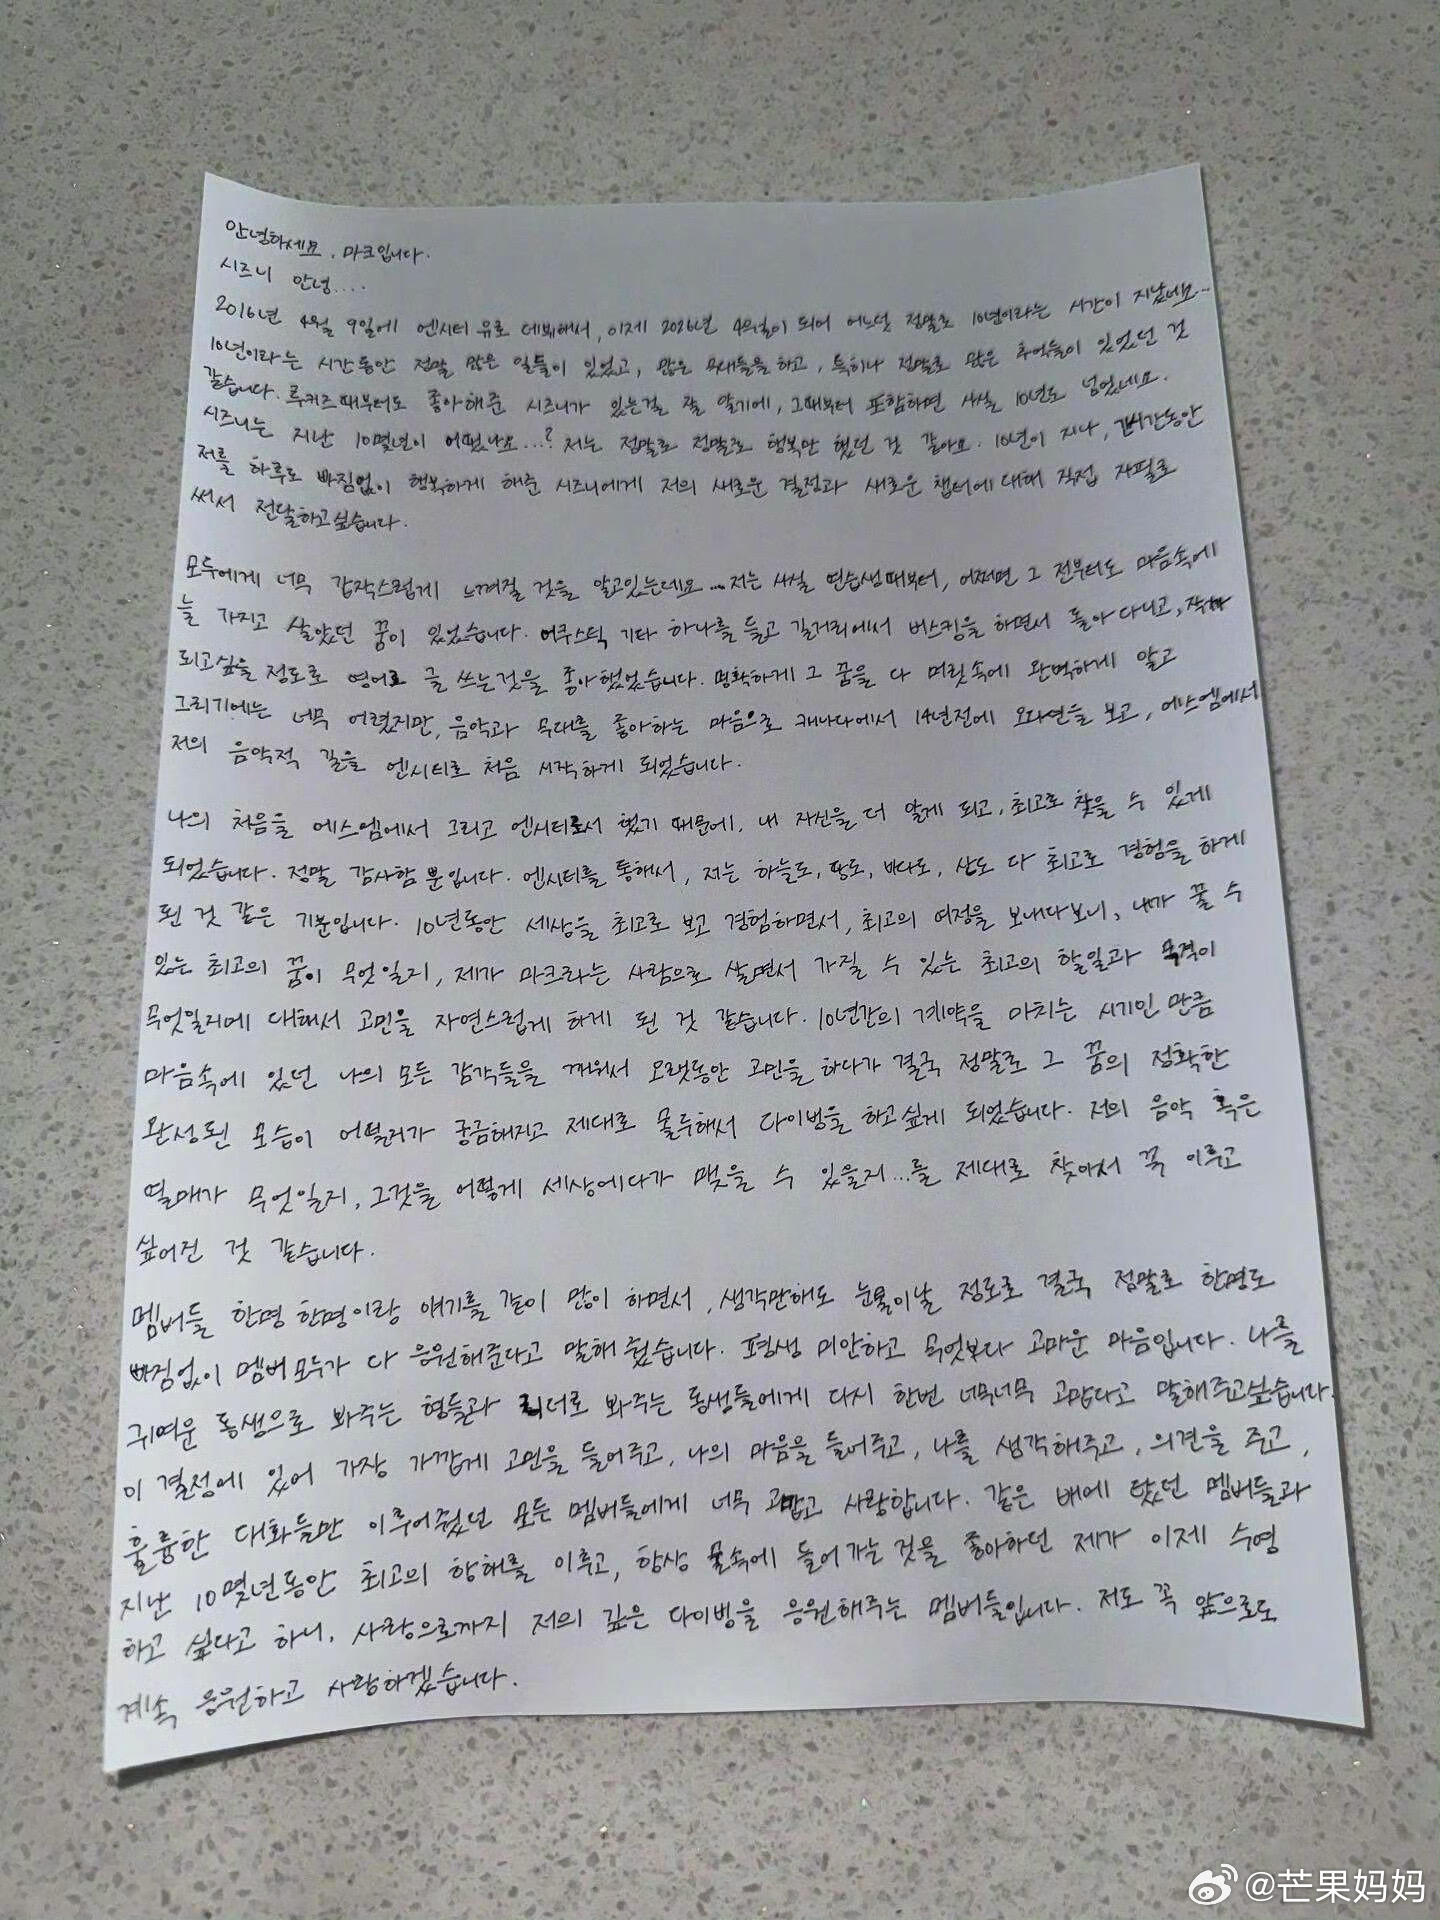 안녕하세요, 마크입니다.
시즈니 안녕....
2016년 4월 9일에 엔시티 유로 데뷔해서, 이제 2026년 4월이 되어 어느덧 정말로 10년이라는 시간이 지났네요...
10년이라는 시간동안 정말 많은 일들이 있었고, 많은 무대들을 하고, 특히나 정말로 많은 추억들이 있었던 것
같습니다. 루키즈때부터도 좋아해준 시즈니가 있는걸 잘 알기에, 그때부터 포함하면 사실 10년도 넘었네요.
시즈니는 지난 10몇년이 어땠나요...? 저는 정말로 정말로 행복만 했던 것 같아요. 10년이 지나, 동안
저를 하루도 빠짐없이 행복하게 해준 시즈니에게 저의 새로운 결정과 새로운 챕터에 대해 직접 자필로
써서 전달하고싶습니다.
모두에게 너무 갑작스럽게 느껴질 것을 알고있는데요... 저는 사실 연습생때부터, 어쩌면 그 전부터도 마음속에
늘 가지고 살았던 꿈이 있었습니다. 어쿠스틱 기타 하나를 들고 길거리에서 버스킹을 하면서 돌아다니고, 작가가
되고싶을 정도로 영어로 글 쓰는것을 좋아했었습니다. 명확하게 그 꿈을 다 머릿속에 완벽하게 알고
그리기에는 너무 어렸지만, 음악과 무대를 좋아하는 마음으로 캐나다에서 14년전에 오디션을 보고, 에스엠에서
저의 음악적 길을 엔시티로 처음 시작하게 되었습니다.
나의 처음을 에스엠에서 그리고 엔시티로서 했기 때문에, 내 자신을 더 알게 되고, 최고로 찾을 수 있게
되었습니다. 정말 감사함 뿐입니다. 엔시티를 통해서, 저는 하늘도, 땅도, 바다도, 산도 다 최고로 경험을 하게
된 것 같은 기분입니다. 10년동안 세상을 최고로 보고 경험하면서, 최고의 여정을 보내다보니, 내가 꿀 수
있는 최고의 꿈이 무엇일지, 제가 마크라는 사람으로 살면서 가질 수 있는 최고의 할일과 목적이
무엇일지에 대해서 고민을 자연스럽게 하게 된 것 같습니다. 10년간의 계약을 마치는 시기인 만큼
마음속에 있던 나의 모든 감각들을 깨워서 오랫동안 고민을 하다가 결국 정말로 그 꿈의 정확한
완성된 모습이 어떨지가 궁금해지고 제대로 몰두해서 다이빙을 하고싶게 되었습니다. 저의 음악 혹은
열매가 무엇일지, 그것을 어떻게 세상에다가 맺을 수 있을지...를 제대로 찾아서 꼭 이루고
싶어진 것 같습니다.
멤버들 한명 한명이랑 얘기를 같이 많이 하면서, 생각만해도 눈물이날 정도로 결국 정말로 한명도
빠짐없이 멤버 모두가 다 응원해준다고 말해 줬습니다. 평생 미안하고 무엇보다 고마운 마음입니다. 나를
귀여운 동생으로 봐주는 형들과 리더로 봐주는 동생들에게 다시 한번 너무너무 고맙다고 말해주고싶습니다.
이 결정에 있어 가장 가깝게 고민을 들어주고, 나의 마음을 들어주고, 나를 생각해주고, 의견을 주고,
훌륭한 대화들만 이루어줬던 모든 멤버들에게 너무 고맙고 사랑합니다. 같은 배에 탔던 멤버들과
지난 10몇년동안 최고의 항해를 이루고, 항상 물속에 들어가는것을 좋아하던 제가 이제 수영
하고 싶다고 하니, 사랑으로까지 저의 깊은 다이빙을 응원해주는 멤버들입니다. 저도 꼭 앞으로도
계속 응원하고 사랑하겠습니다.
@芒果妈妈